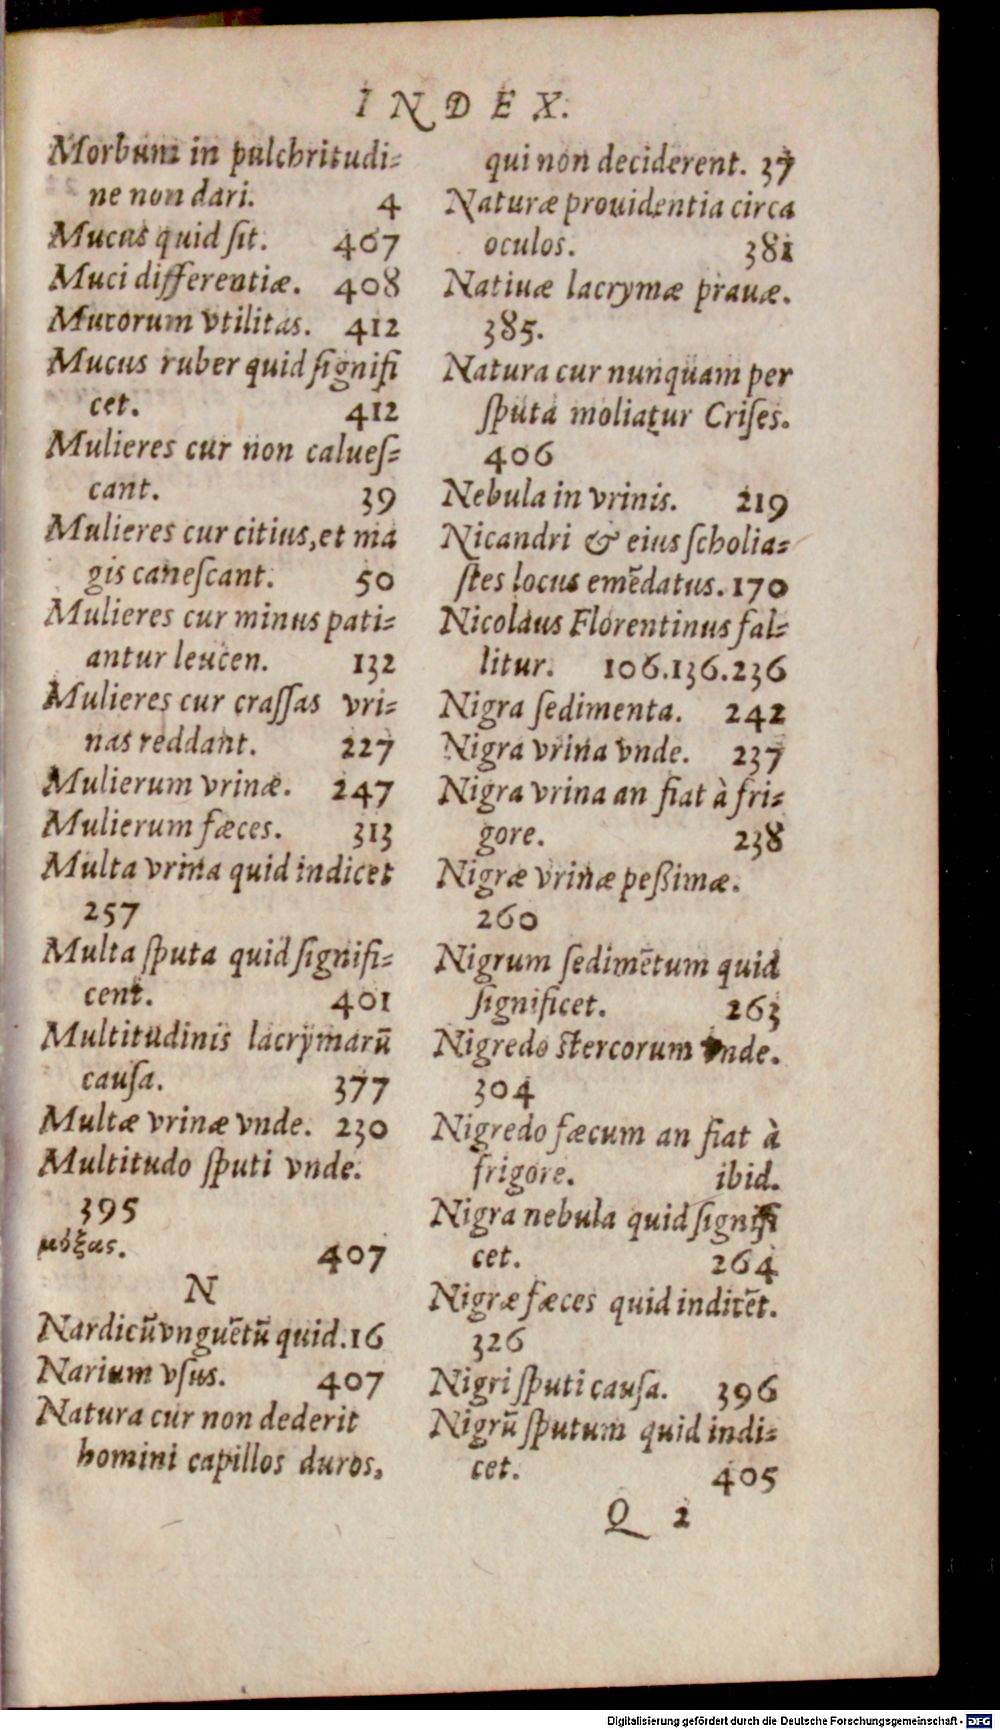 INDEX.
Morbum in pulchritudi⸗
ne non dari. 4
Mucus quid ſit. 407
Muci differentiæ. 408
Mucorum vtilitas. 412
Mucus ruber quid ſignifi
cet. 412
Mulieres cur non calueſ⸗
cant. 39
Mulieres cur citius, et ma
gis caneſcant. 50
Mulieres cur minus pati⸗
antur leucen. 132
Mulieres cur craſſas vri⸗
nas reddant. 227
Mulierum vrinæ. 247
Mulierum fæces. 313
Multa vrina quid indicet
257
Multa ſputa quid ſignifi⸗
cent. 401
Multitudinis lacrymarū
cauſa. 377
Multæ vrinæ vnde. 230
Multitudo ſputi vnde.
395
μύξας. 407
N
Nardicū vnguētū quid. 16
Narium vſus. 407
Natura cur non dederit
homini capillos duros,
qui non deciderent. 37
Naturæ prouidentia circa
oculos. 381
Natiuæ lacrymæ prauæ.
385.
Natura cur nunquam per
ſputa moliatur Criſes.
406
Nebula in vrinis. 219
Nicandri & eius ſcholia⸗
ſtes locus emēdatus. 170
Nicolaus Florentinus fal⸗
litur. 106.136.236
Nigra ſedimenta. 242
Nigra vrina vnde. 237
Nigra vrina an fiat à fri⸗
gore. 238
Nigræ vrinæ peßimæ.
260
Nigrum ſedimētum quid
ſignificet. 263
Nigredo ſtercorum vnde.
304
Nigredo fæcum an fiat à
frigore. ibid.
Nigra nebula quid ſignifi
cet. 264
Nigræ fæces quid indicēt.
326
Nigri ſputi cauſa. 396
Nigrū ſputum quid indi⸗
cet. 405
Q 2
Digitalisierung gefördert durch die Deutsche Forschungsgemeinschaft - DFG